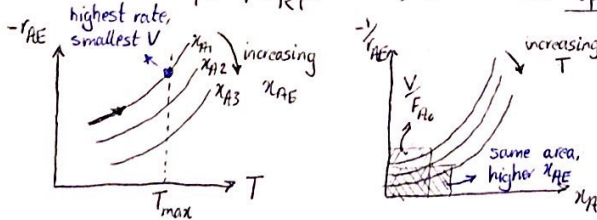 highest rate,
smallest V
-rAE
xA1
xA2
xA3
increasing
xAE
Tmax
T
-1/rAE
V/FA0
increasing
T
same area,
higher xAE
xA